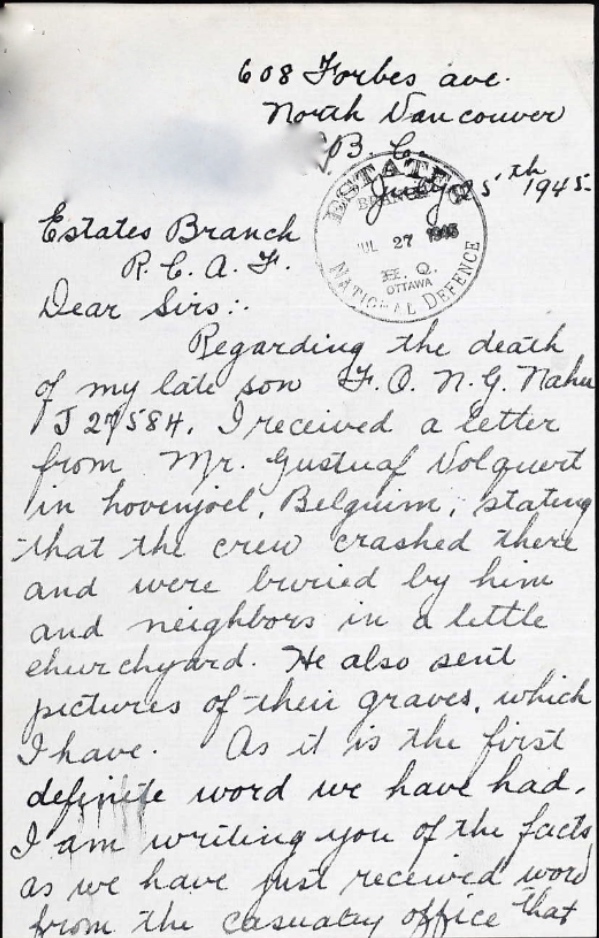 608 Forbes ave.
North Vancouver
B. C.
July 25th 1945.
ESTATES
BRANCH
JUL 27 1945
H. Q.
OTTAWA
NATIONAL DEFENCE
Estates Branch
R. C. A. F.
Dear Sirs:.
Regarding the death
of my late son F. O. N. G.
J 27584. I received a letter
from Mr. Gustuaf Volquert
in hovenjoel, Belguim, stating
that the crew crashed there
and were buried by him
and neighbors in a little
churchyard. He also sent
pictures of their graves, which
I have. As it is the first
definite word we have had,
I am writing you of the facts,
as we have just received word
from the casualty office that